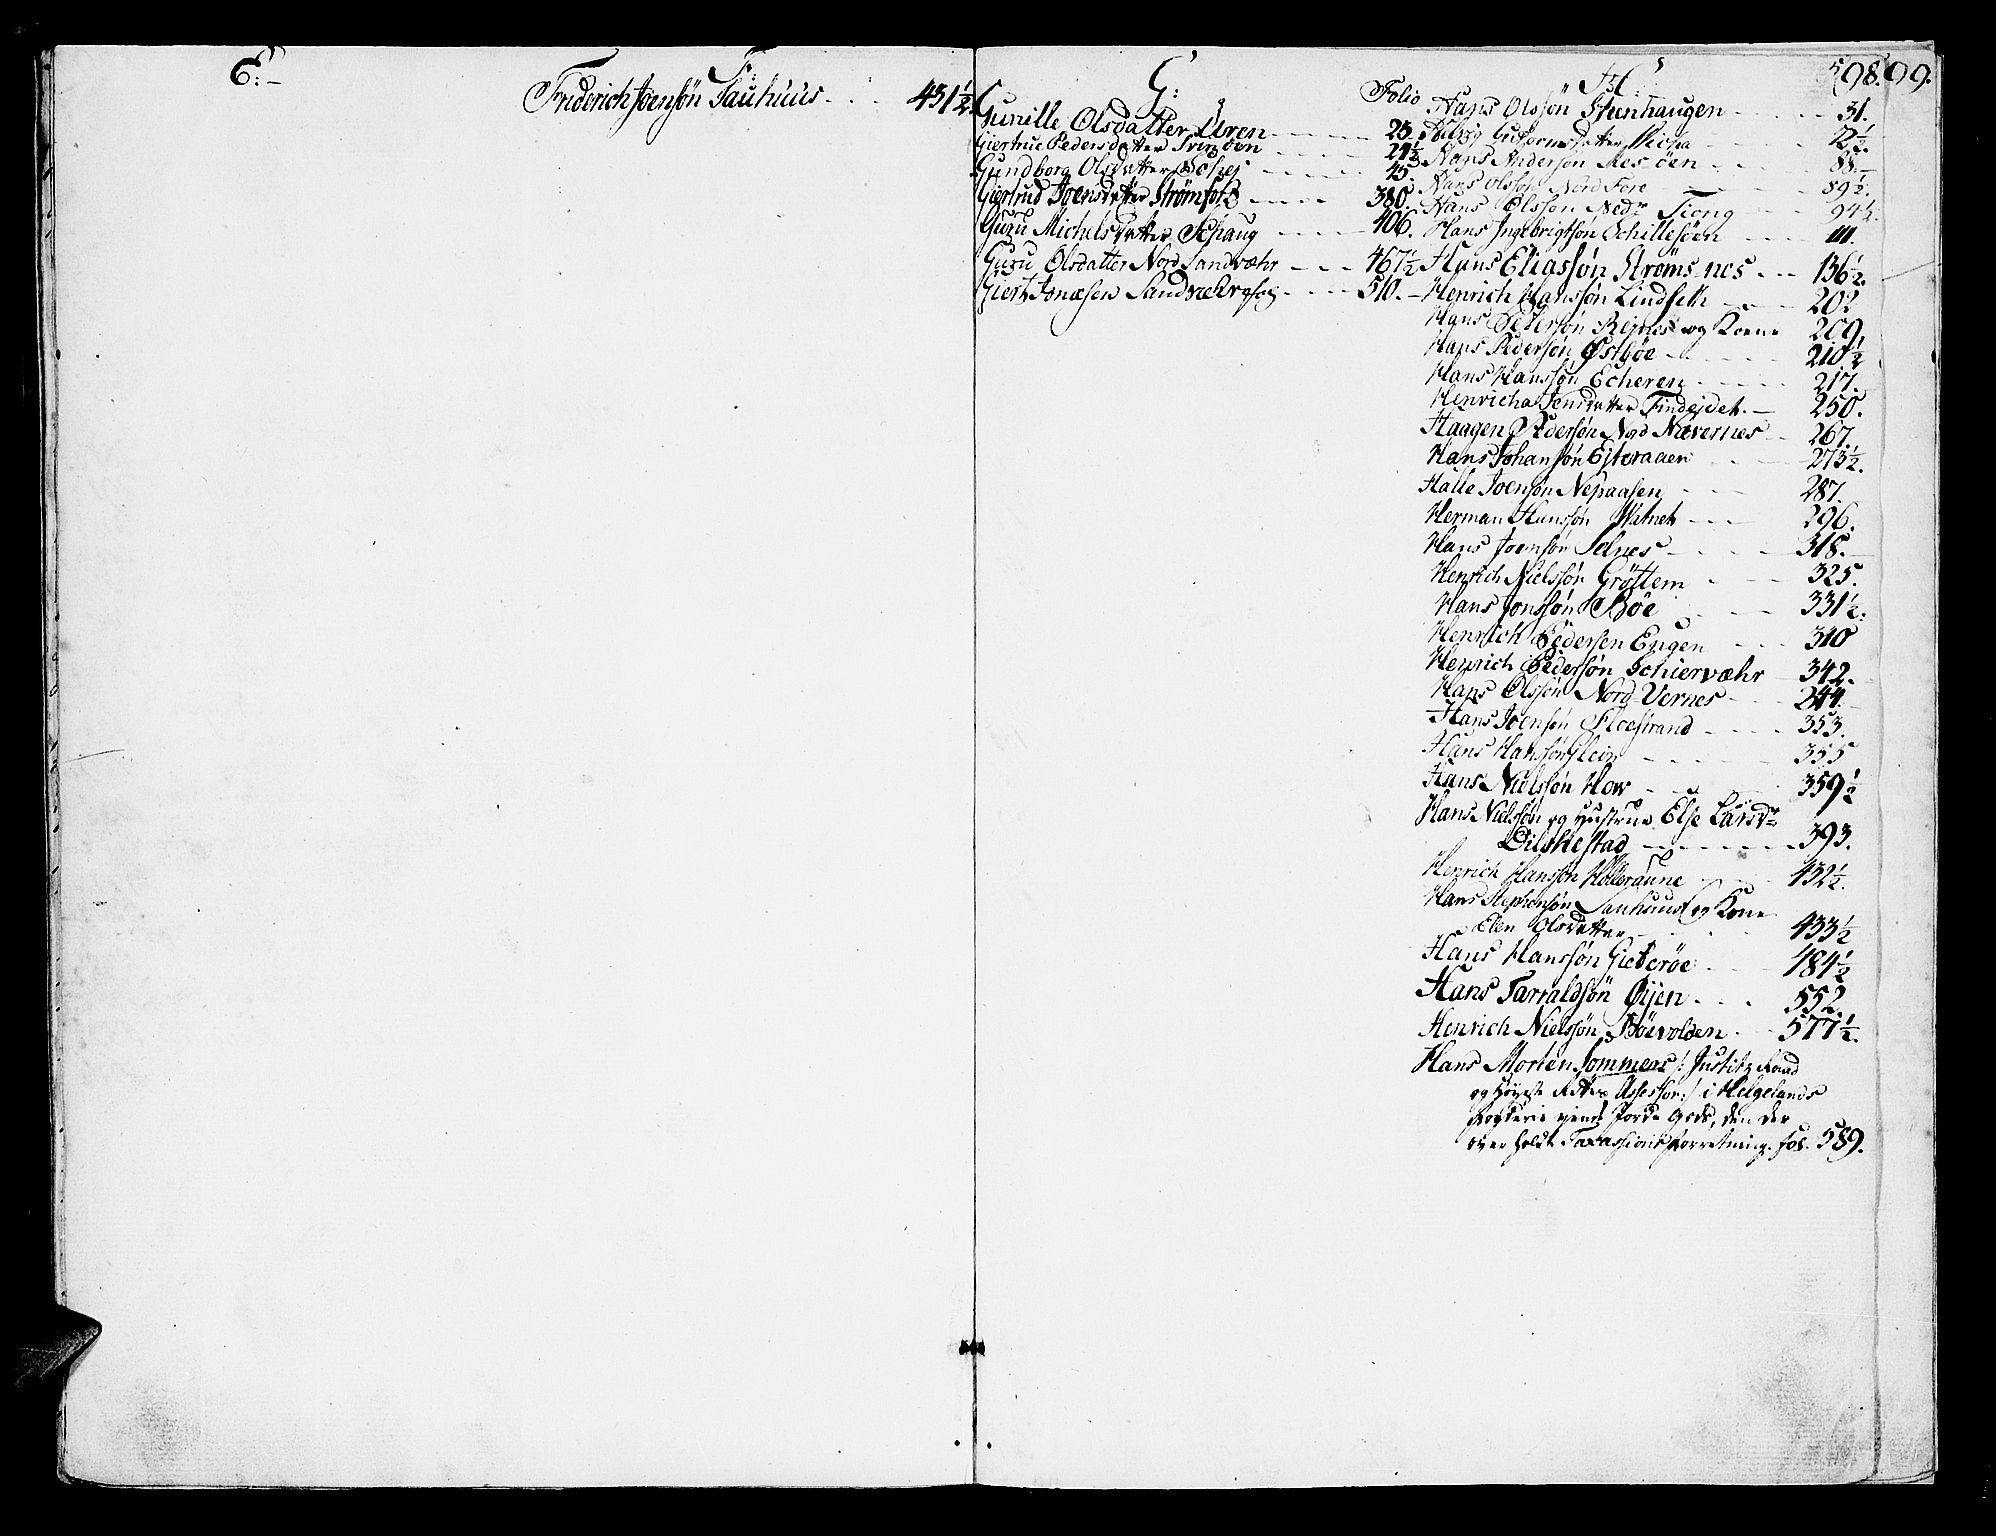 E:
F:
Friderich Joensøn Sauhuus 431½
G:
Folio
Gunille Olsdatter Uren 25.
Giertrue Pedersdatter 24½
Gundborg Olsdatter 45.
Giertrud Joensdatter Strømfors 380.
Guru Michelsdatter Schaug 406.
Guru Olsdatter Nord Sandvæhr 467½
Giert Jonæsen 510.
H:
598. 99.
Hans Olssøn Stenhaugen 31.
Guttormsdatter
Hans Andersøn Mesøen 88.
Hans Olsson Nord Fore 89½.
Hans Olsson Nedr Tieng 94½.
Hans Ingebrigtsøn Schillesøen 111.
Hans Eliassøn Strømsnes 136½.
Henrich Hanssøn Lindseth 202
Hans Pedersøn Reines og Kone 209.
Hans Pedersøn Østbøe 210½
Hans Hanssøn Echeren 217.
Henricha Jensdatter Findejdet 250.
Haagen Pedersøn Nord Nævernes 267.
Hans Johansøn Ejteraaen 273½.
Halle Joensøn Nepaasen 287.
Herman Hanssøn Watnet 296.
Hans Joensøn Selnes 318.
Henrich Nielssøn Grøttem 325.
Hans Jonssøn Bøe 331½.
Henrich Pedersen Engen 340
Henrich Pedersøn Schiervæhr 342.
Hans Olssøn Nord Vernes 244.
Hans Joensøn Floestrand 353.
Hans Hanssøn 355
Hans Nielssøn Hov 359½
Hans Nielssøn og Hustrue Else Larsdr
Dilkestad 393.
Henrich Hanssøn Holleraune 432½.
Hans Stephensøn Sauhuus og Kone
Elen Olsdatter 433½
Hans Hanssøn Gieterøe 484½
Hans Tarraldsøn Øijen 552.
Henrich Nielssøn Bøevolden 577½.
Hans Morten Sommers /: Justitz Raad
og Høyeste Retts Assessor :/ i Helgelands
Fogderie ejende Jorde Gods, den der
over holdt Taxassions forretning. fol. 589.